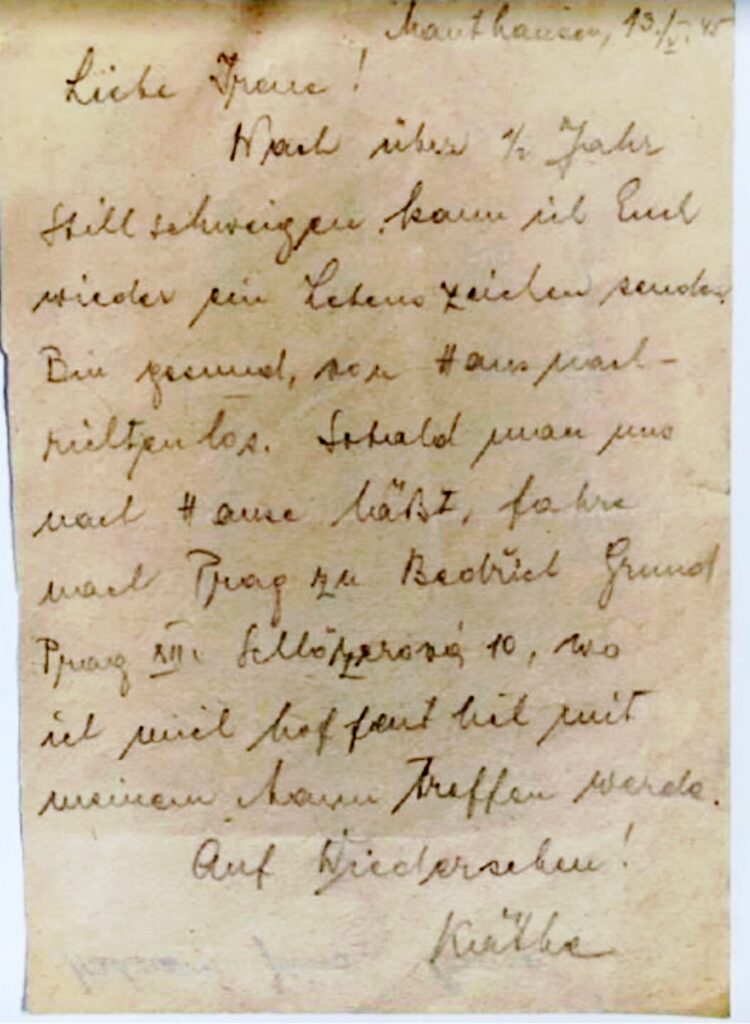 Mauthausen, 13./V. 45
Liebe Irene!
Nach über ½ Jahr
Stillschweigen, kann ich Euch
wieder ein Lebenszeichen senden.
Bin gesund, von Haus nach-
richtenlos. Sobald man uns
nach Hause läßt, fahre
nach Prag zu Bedřich Grund
Prag XII. Schlözerová 10, wo
ich mich hoffentlich mit
meinem Mann treffen werde.
Auf Wiedersehen!
Käthe